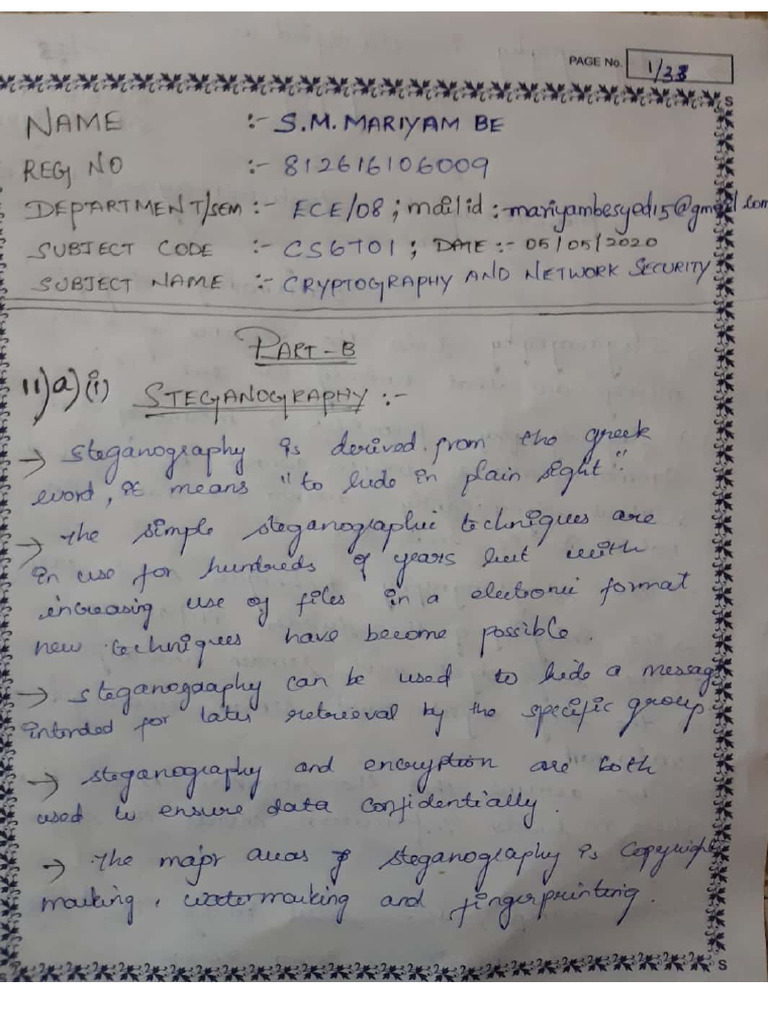 PAGE No. 1/38
NAME :- S.M. MARIYAM BE
REG NO :- 812616106009
DEPARTMENT/SEM :- ECE/08 ; mail id : mariyambesyed15@gmail.com
SUBJECT CODE :- CS6701 ; DATE :- 05/05/2020
SUBJECT NAME :- CRYPTOGRAPHY AND NETWORK SECURITY
PART-B
11)a)(i) STEGANOGRAPHY :-
→ steganography is derived from the greek
word, it means "to hide in plain sight".
→ the simple steganographic techniques are
in use for hundreds of years but with
increasing use of files in a electronic format
new techniques have become possible.
→ steganography can be used to hide a message
intended for later retrieval by the specific group
→ steganography and encryption are both
used to ensure data confidentially.
→ the major areas of steganography is copyright
marking, watermarking and fingerprinting.